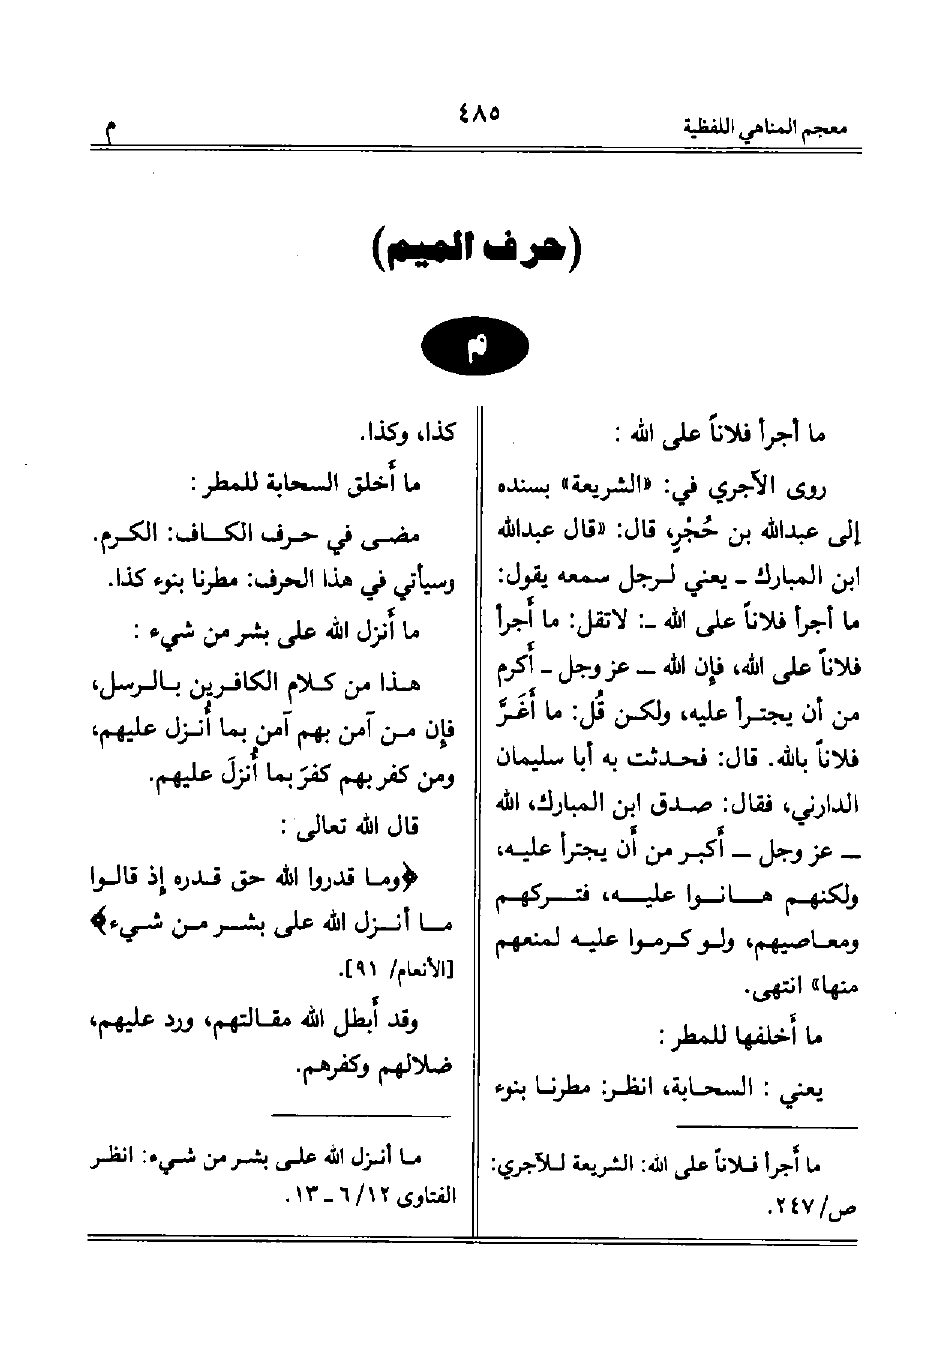 معجم المناهي اللفظية
٤٨٥
م
(حرف الميم)
م
ما أجرأ فلاناً على الله :
روى الآجري في: «الشريعة» بسنده
إلى عبدالله بن حُجْرٍ، قال: «قال عبدالله
ابن المبارك ـ يعني لرجل سمعه يقول:
ما أجرأ فلاناً على الله ـ: لاتقل: ما أَجرأ
فلاناً على الله، فإن الله ـ عز وجل ـ أَكرم
من أن يجترأ عليه، ولكن قُل: ما أَغَرَّ
فلاناً بالله. قال: فحدثت به أبا سليمان
الدارني، فقال: صدق ابن المبارك، الله
ـ عز وجل ـ أَكبر من أَن يجترأ عليه،
ولكنهم هانوا عليه، فتركهم
ومعاصيهم، ولو كرموا عليه لمنعهم
منها» انتهى.
ما أَخلفها للمطر :
يعني : السحابة، انظر: مطرنا بنوء
كذا، وكذا.
ما أَخلق السحابة للمطر :
مضى في حرف الكاف: الكرم.
وسيأتي في هذا الحرف: مطرنا بنوء كذا.
ما أَنزل الله على بشر من شيء :
هذا من كلام الكافرين بالرسل،
فإن من آمن بهم آمن بما أُنزل عليهم،
ومن كفر بهم كفرَ بما أُنزلَ عليهم.
قال الله تعالى :
﴿وما قدروا الله حق قدره إذ قالوا
ما أنزل الله على بشر من شيء﴾
[الأنعام/ ٩١].
وقد أَبطل الله مقالتهم، ورد عليهم،
ضلالهم وكفرهم.
ما أَجرأ فلاناً على الله: الشريعة للآجري:
ص/ ٢٤٧.
ما أنزل الله على بشر من شيء: انظر
الفتاوى ١٢/ ٦ـ ١٣.